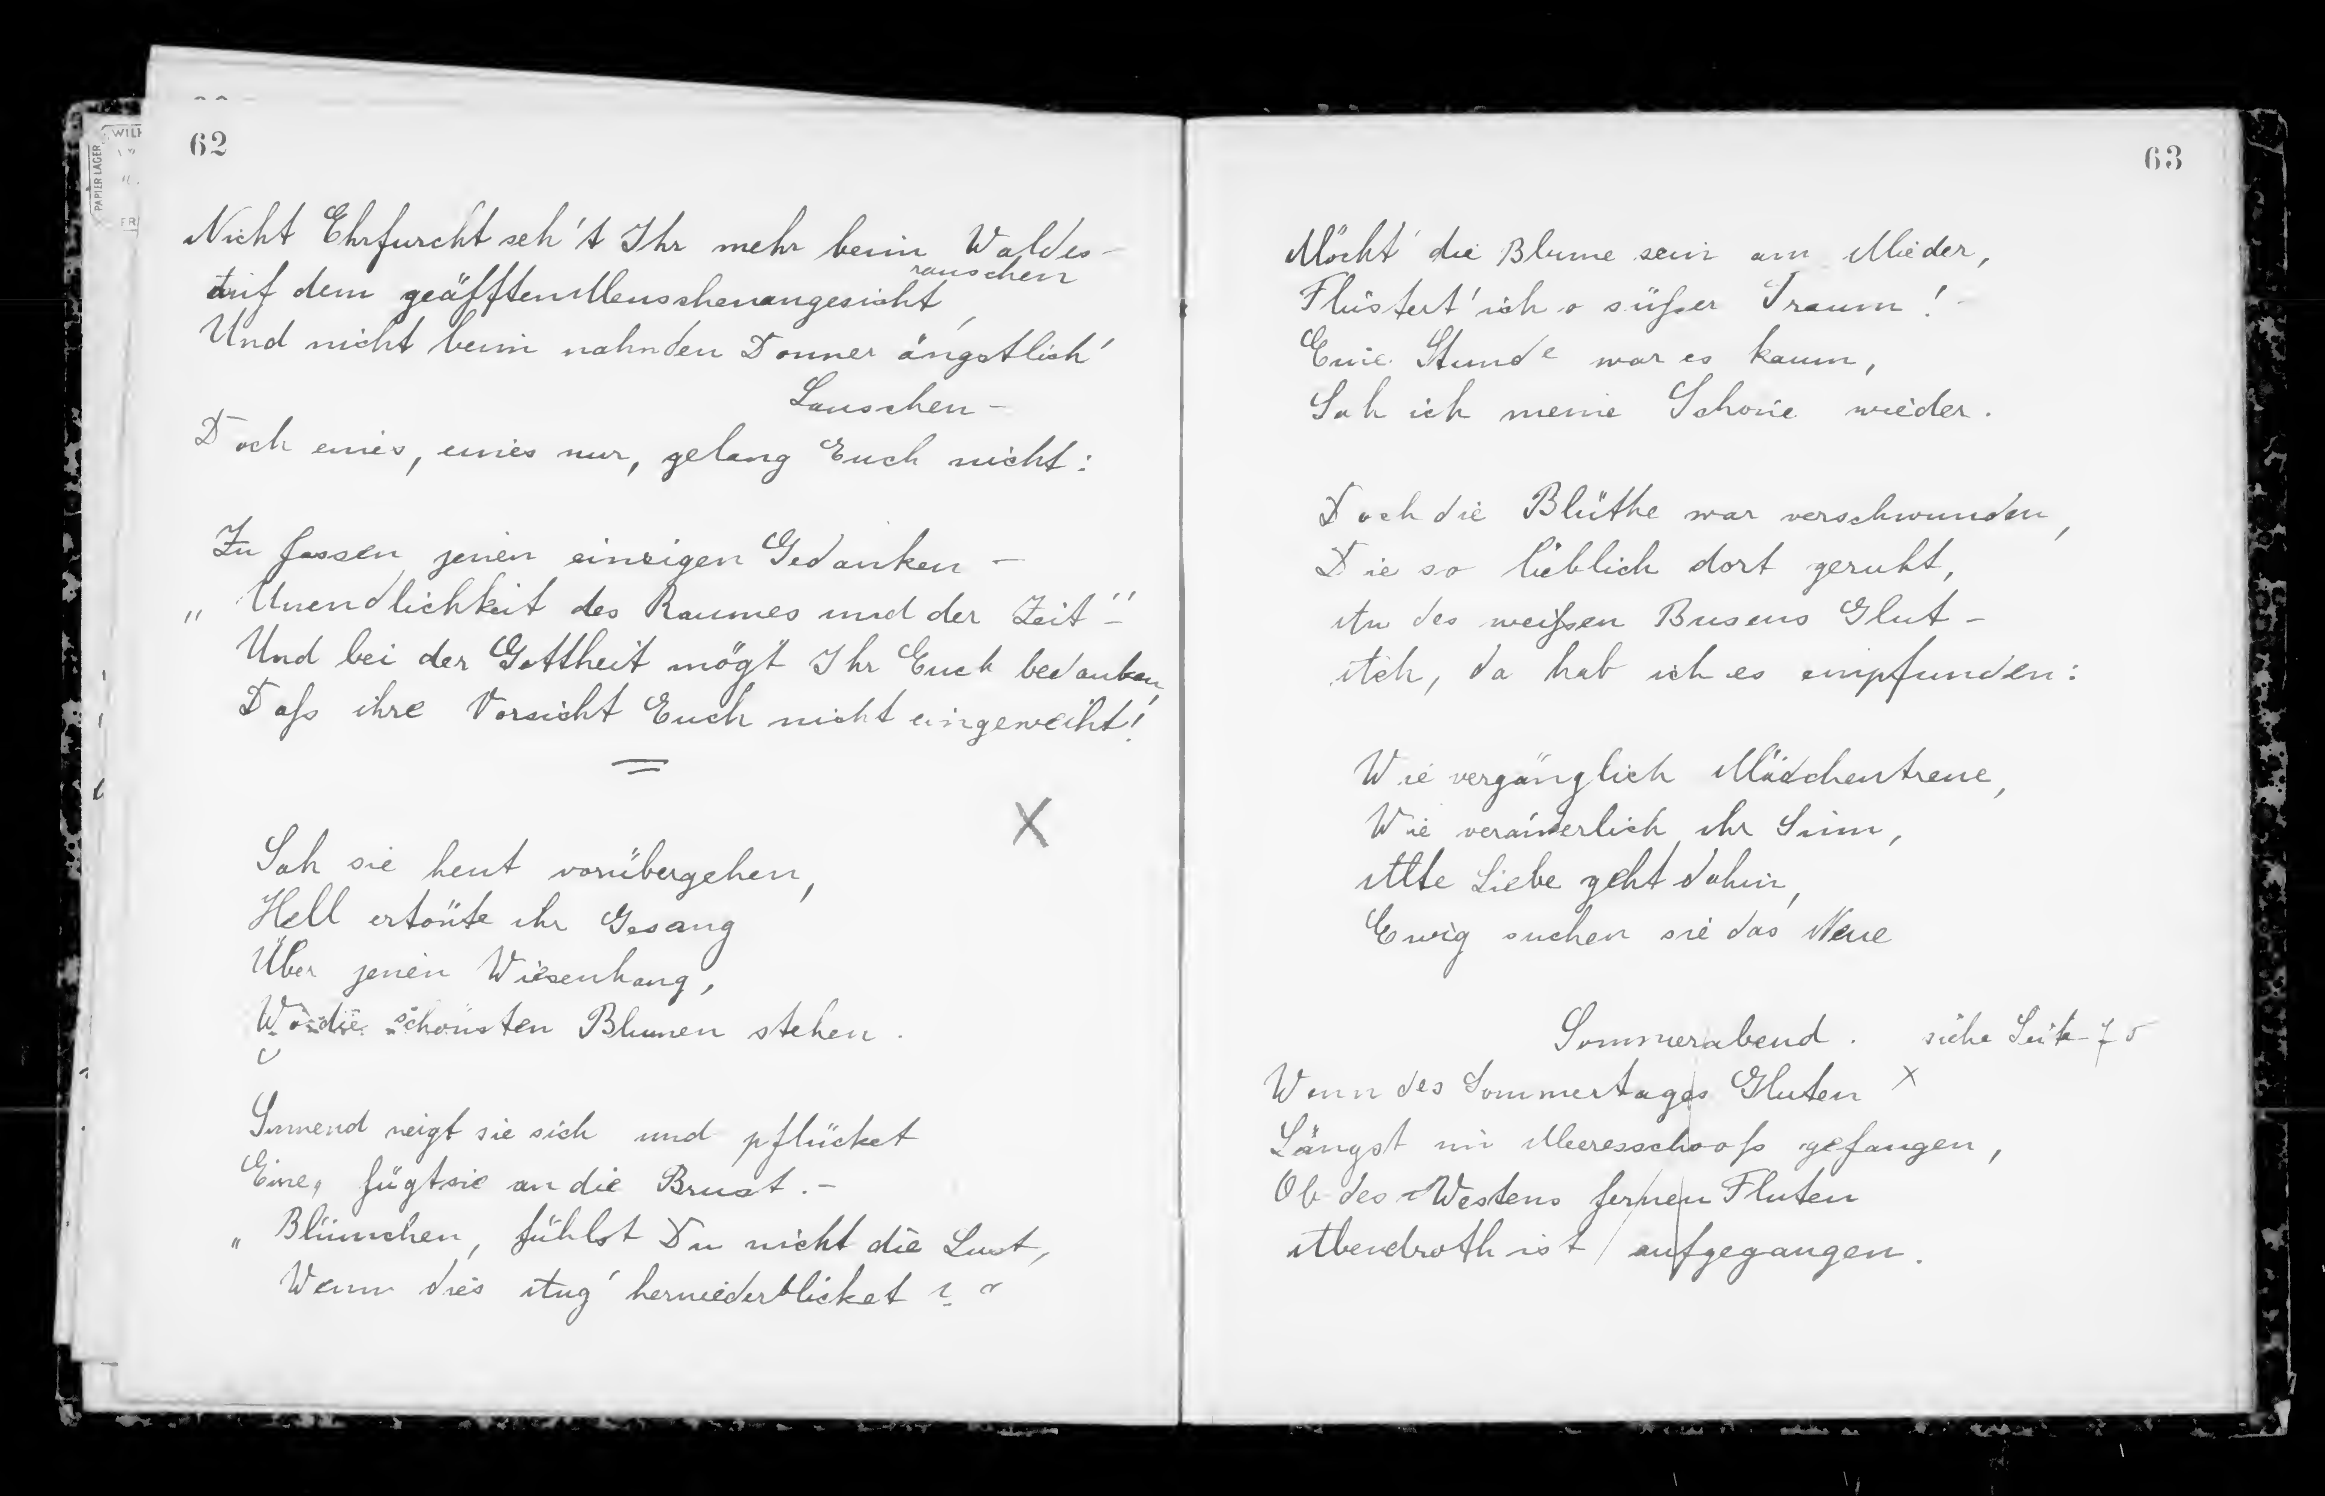 WILH
PAPIER LAGER
FR
62
Nicht Ehrfurcht seh't Ihr mehr beim Waldes-
rauschen
Auf dem geäfften Menschenangesicht,
Und nicht beim nahnden Donner ängstlich'
Lauschen -
Doch eines, eines nur, gelang Euch nicht:
Zu fassen jenen einzigen Gedanken -
„Unendlichkeit des Raumes und der Zeit" -
Und bei der Gottheit mögt Ihr Euch bedanken,
Daſs ihre Vorsicht Euch nicht eingeweiht!
X
Sah sie heut vorübergehen,
Hell ertönte ihr Gesang
Über jenen Wiesenhang,
Wo die schönsten Blumen stehen.
Sinnend neigt sie sich und pflücket
Eine, fügt sie an die Brust. -
„Blümchen, fühlst Du nicht die Lust,
Wenn dies Aug' herniederblicket?"
63
Möcht' die Blume sein am Mieder,
Flüstert' ich o süſser Traum! -
Eine Stunde war es kaum,
Sah ich meine Schöne wieder.
Doch die Blüthe war verschwunden,
Die so lieblich dort geruht,
An des weiſsen Busens Glut -
Ach, da hab ich es empfunden:
Wie vergänglich Mädchentreue,
Wie veränderlich ihr Sinn,
Alte Liebe geht dahin,
Ewig suchen sie das Neue
Sommerabend. siehe Seite 70
Wenn des Sommertages Gluten X
Längst im Meeresschooſs gefangen,
Ob des Westens fernen Fluten
Abendroth ist aufgegangen.